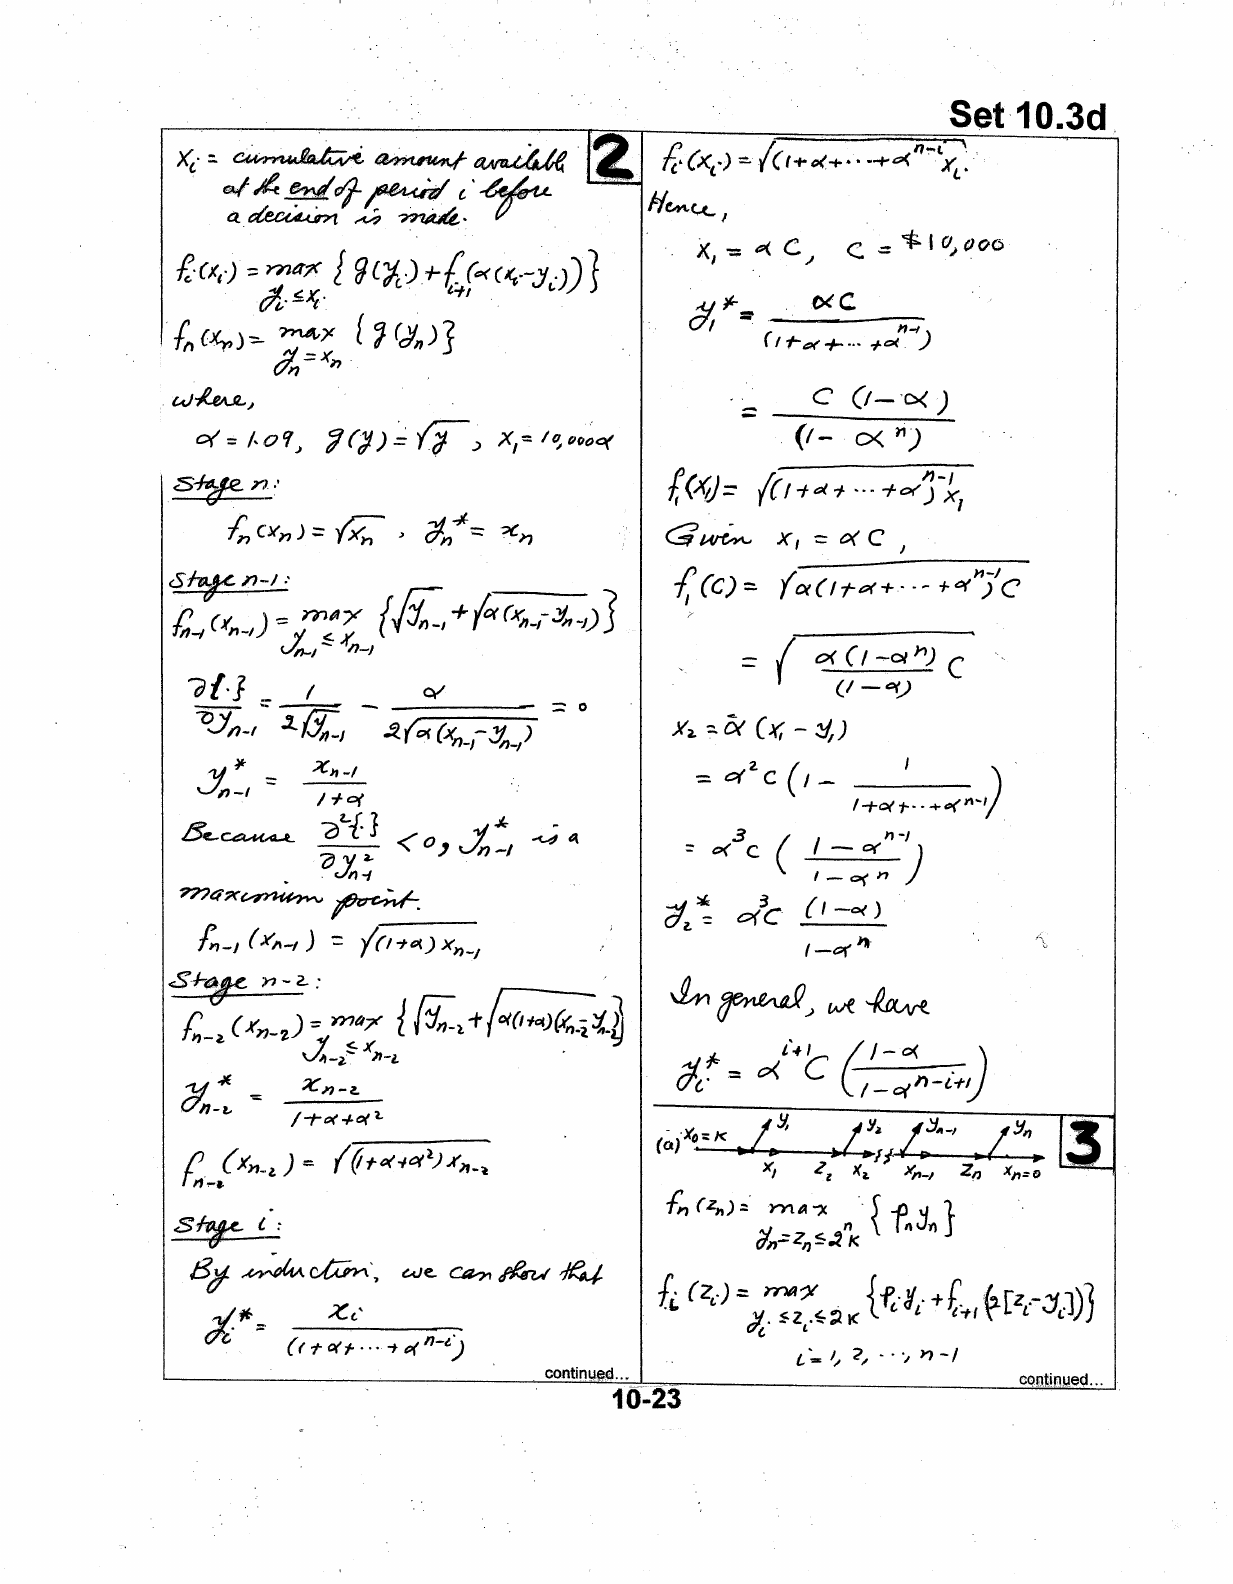 Set 10.3d
2
xᵢ = cumulative amount available
at the end of period i before
a decision is made.
fᵢ(xᵢ) = max {g(yᵢ) + fᵢ₊₁(α(xᵢ-yᵢ))}
yᵢ ≤ xᵢ
fₙ(xₙ) = max {g(yₙ)}
yₙ = xₙ
where,
α = 1.09, g(y) = √y , x₁ = 10,000α
Stage n:
fₙ(xₙ) = √xₙ , yₙ* = xₙ
Stage n-1:
fₙ₋₁(xₙ₋₁) = max {√yₙ₋₁ + √(α(xₙ₋₁-yₙ₋₁))}
yₙ₋₁ ≤ xₙ₋₁
∂{·}/∂yₙ₋₁ = 1/(2√yₙ₋₁) - α/(2√(α(xₙ₋₁-yₙ₋₁))) = 0
y*ₙ₋₁ = xₙ₋₁/(1+α)
Because ∂²{·}/∂y²ₙ₋₁ < 0, y*ₙ₋₁ is a
maximum point.
fₙ₋₁(xₙ₋₁) = √((1+α)xₙ₋₁)
Stage n-2:
fₙ₋₂(xₙ₋₂) = max {√yₙ₋₂ + √(α(1+α)(xₙ₋₂-yₙ₋₂))}
yₙ₋₂ ≤ xₙ₋₂
y*ₙ₋₂ = xₙ₋₂/(1+α+α²)
fₙ₋₂(xₙ₋₂) = √((1+α+α²)xₙ₋₂)
Stage i:
By induction, we can show that
yᵢ* = xᵢ/(1+α+···+αⁿ⁻ⁱ)
continued...
fᵢ(xᵢ) = √((1+α+···+αⁿ⁻ⁱ)xᵢ.
Hence,
x₁ = αC, C = $10,000
y₁* = αC/(1+α+···+αⁿ⁻¹)
= C(1-α)/(1-αⁿ)
f₁(x₁) = √((1+α+···+αⁿ⁻¹)x₁)
Given x₁ = αC,
f₁(C) = √(α(1+α+···+αⁿ⁻¹)C)
= √(α(1-αⁿ)/(1-α) C)
x₂ = α(x₁ - y₁)
= α²C(1 - 1/(1+α+··+αⁿ⁻¹))
= α³C((1-αⁿ⁻¹)/(1-αⁿ))
y₂* = α³C (1-α)/(1-αⁿ)
In general, we have
yᵢ* = αⁱ⁺¹C((1-α)/(1-αⁿ⁻ⁱ⁺¹))
3
y₁ y₂ yₙ₋₁ yₙ
(a) x₀=K
x₁ z₂ x₂ xₙ₋₁ zₙ xₙ=0
fₙ(zₙ) = max {pₙyₙ}
yₙ=zₙ≤2ⁿK
fᵢ(zᵢ) = max {pᵢyᵢ + fᵢ₊₁(2[zᵢ-yᵢ])}
yᵢ≤zᵢ≤2ⁱK
i = 1, 2, ···, n-1
continued...
10-23